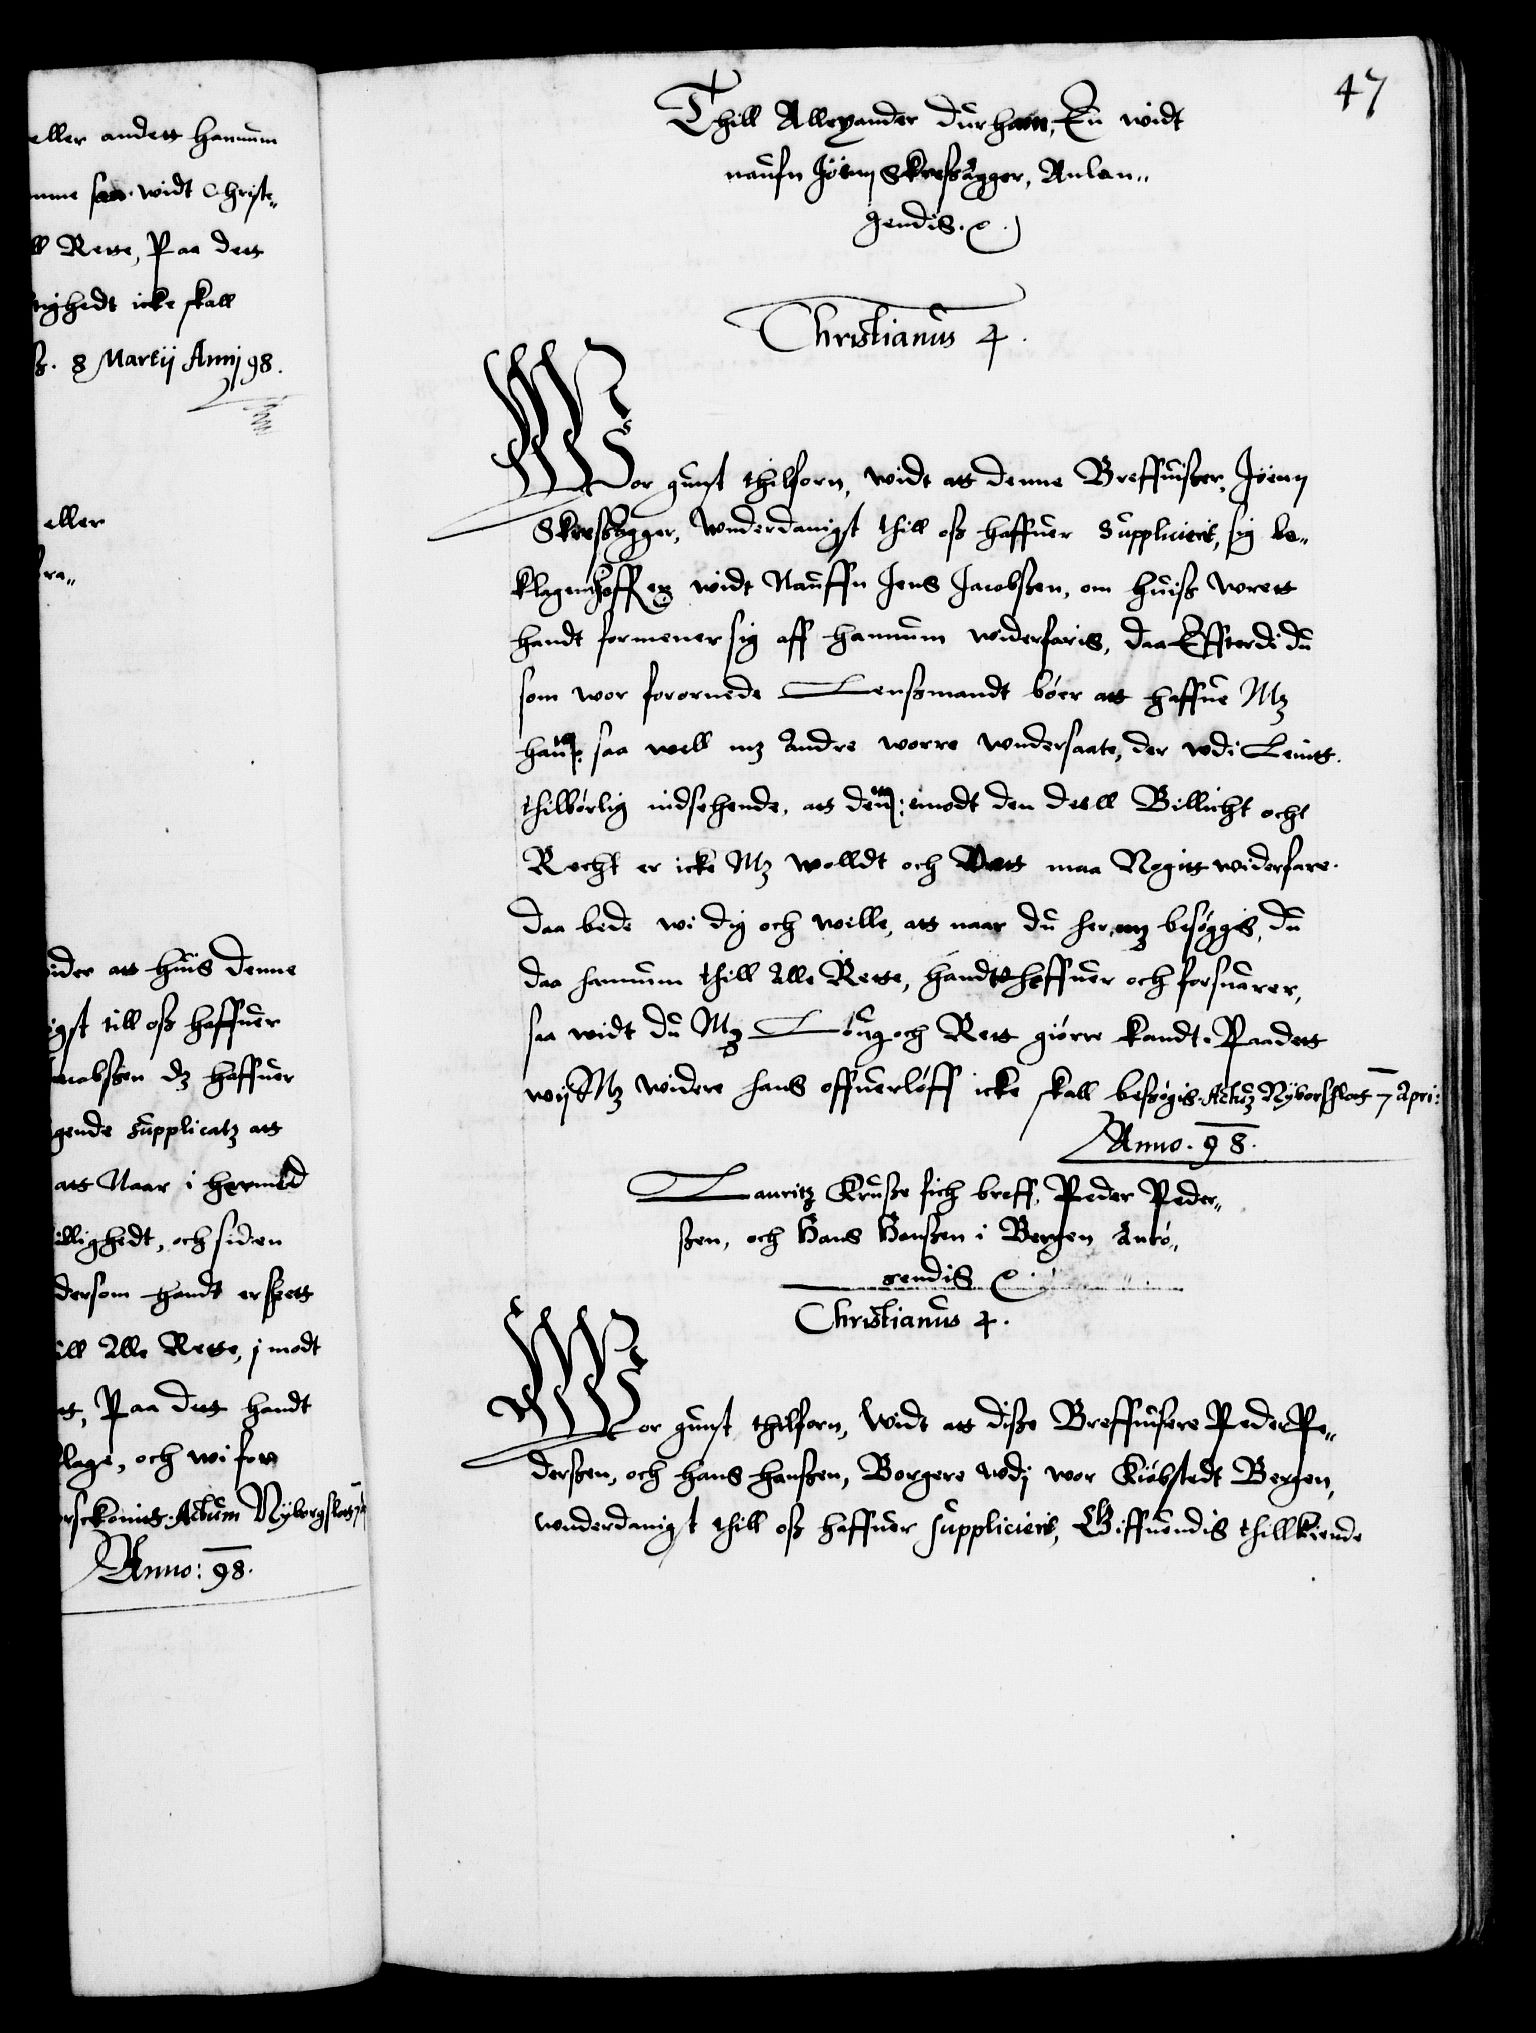 eller andett hannum
mme saa widt Christe„
ll Rette, Paa dett
tighedt icke skall
ß. 8 Martij Annj 98.
eller
fra„
ider att huis denne
igst till oß haffuer
acobßen dz haffuer
gende supplicatz att
att Naar i hermed
illighedt, och siden
dersom handt ersßett
till Alle Rette, j modt
tt, Paa dett handt
klage, och wi for
Actum Nyborgslott 7
Anno: 98.
47
Thill Allexander Durham, En widt
naufn Jørnn Skreßøgger, Anlan„
gendis.
Christianus 4.
Wor gunst thilforn, widt att denne Breffuißer, Jørnn
Skreßøgger, Wnderdanigst thill oß haffuer Suppliciert, sig be„
klagendis offuer en widt Nauffn Jens Jacobßen, om huiß Wrett
handt formener sig aff hannum widerfaris, daa Effterdi du
som wor forornede Lenßmandt bør att haffue Mz
hannom saa well mz Andre worre Wndersaate, der wdi Lenitt
thilbørlig indsehende, att dennom imodt den dell Billicht och
Recht er icke Mz wolldt och Wrett maa Nogitt widerfare.
daa bede wi dig och wille, att naar du her mz besøgis, du
daa hannum thill Alle Rette, handthoffuer och forsuarer,
saa widt du Mz Loug och Rett giørre kandt. Paadett
wij Mz widere hans offuerløff icke skall beßøgis. Actum Nyborslott 7 Apri:
Anno. 98.
Lauritz Kruße fich breff, Peder Peder„
ßen, och Hans Hanßen i Bergen Anrø„
rendis
Christianus 4.
Wor gunst thilforn, Widt att diße Breffuisere Peder Pe„
derßen, och Hans Hanßen, Borgere wdj wor Kiøbstedt Bergen,
wnderdanigst thill oß haffuer suppliciert, Giffuendis thillkiende